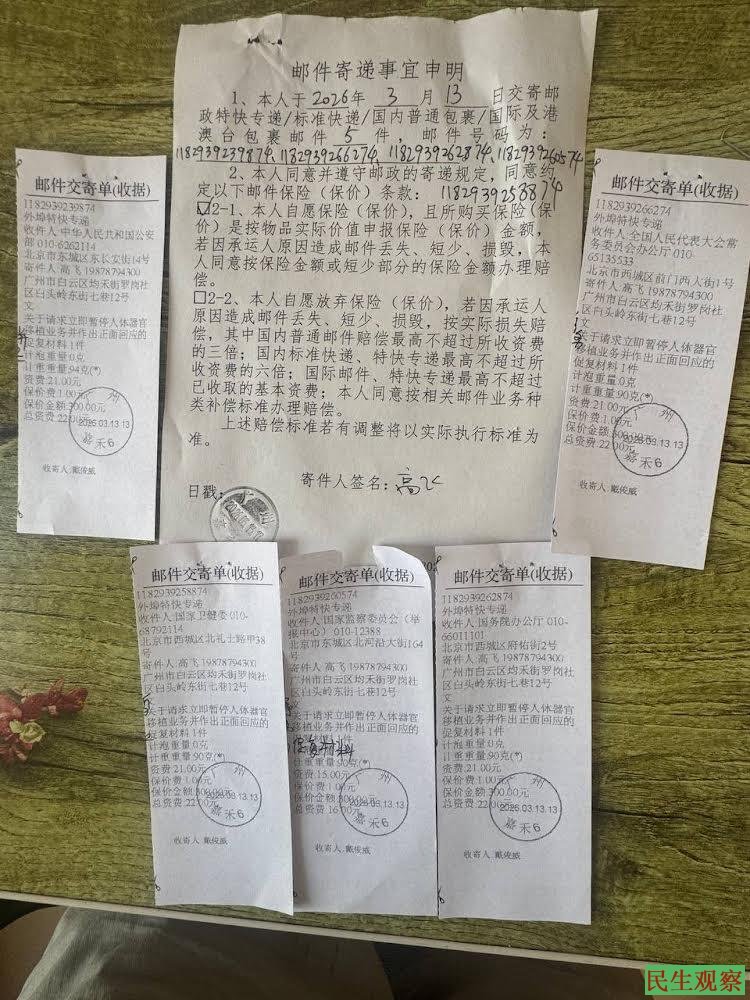 邮件寄递事宜申明
1、本人于2026年3月13日交寄邮
政特快专递/标准快递/国内普通包裹/国际及港
澳台包裹邮件5件，邮件号码为：
1182939239874、1182939266274、1182939262874、1182939260574
2、本人同意并遵守邮政的寄递规定，同意约
定以下邮件保险（保价）条款：1182939258874
☑2-1、本人自愿保险（保价），且所购买保险（保
价）是按物品实际价值申报保险（保价）金额，
若因承运人原因造成邮件丢失、短少、损毁，本
人同意按保险金额或短少部分的保险金额办理赔
偿。
□2-2、本人自愿放弃保险（保价），若因承运人
原因造成邮件丢失、短少、损毁，按实际损失赔
偿，其中国内普通邮件赔偿最高不超过所收资费
的三倍；国内标准快递、特快专递最高不超过所
收资费的六倍；国际邮件、特快专递最高不超过
已收取的基本资费；本人同意按相关邮件业务种
类补偿标准办理赔偿。
上述赔偿标准若有调整将以实际执行标准为
准。
寄件人签名：高飞
日戳：
邮件交寄单(收据)
1182939239874
外埠特快专递
收件人:中华人民共和国公安
部 010-6262114
北京市东城区东长安街14号
寄件人:高飞 19878794300
广州市白云区均禾街罗岗社
区白头岭东街七巷12号
文
关于请求立即暂停人体器官
移植业务并作出正面回应的
促复材料1件
计泡重量:0克
计重重量:94克(*)
资费:21.00元
保价费:1.00元
保价金额:300.00元
总资费:22.00元
广州
2026.03.13.13
嘉禾6
收寄人:戴俊威
邮件交寄单(收据)
1182939266274
外埠特快专递
收件人:全国人民代表大会常
务委员会办公厅 010-
65135533
北京市西城区前门西大街1号
寄件人:高飞 19878794300
广州市白云区均禾街罗岗社
区白头岭东街七巷12号
文
关于请求立即暂停人体器官
移植业务并作出正面回应的
促复材料1件
计泡重量:0克
计重重量:90克(*)
资费:21.00元
保价费:1.00元
保价金额:300.00元
总资费:22.00元
广州
2026.03.13.13
嘉禾6
收寄人:戴俊威
邮件交寄单(收据)
1182939258874
外埠特快专递
收件人:国家卫健委 010-
68792114
北京市西城区北礼士路甲38
号
寄件人:高飞 19878794300
广州市白云区均禾街罗岗社
区白头岭东街七巷12号
文
关于请求立即暂停人体器官
移植业务并作出正面回应的
促复材料1件
计泡重量:0克
计重重量:90克(*)
资费:21.00元
保价费:1.00元
保价金额:300.00元
总资费:22.00元
广州
2026.03.13.13
嘉禾6
收寄人:戴俊威
邮件交寄单(收据)
1182939260574
外埠特快专递
收件人:国家监察委员会（举
报中心） 010-12388
北京市东城区北河沿大街164
号
寄件人:高飞 19878794300
广州市白云区均禾街罗岗社
区白头岭东街七巷12号
文
关于请求立即暂停人体器官
移植业务并作出正面回应的
促复材料
计重重量:90克(*)
资费:15.00元
保价费:1.00元
保价金额:300.00元
总资费:16.00元
广州
2026.03.13.13
嘉禾6
收寄人:戴俊威
邮件交寄单(收据)
1182939262874
外埠特快专递
收件人:国务院办公厅 010-
66011101
北京市西城区府佑街2号
寄件人:高飞 19878794300
广州市白云区均禾街罗岗社
区白头岭东街七巷12号
文
关于请求立即暂停人体器官
移植业务并作出正面回应的
促复材料1件
计泡重量:0克
计重重量:90克(*)
资费:21.00元
保价费:1.00元
保价金额:300.00元
总资费:22.00元
广州
2026.03.13.13
嘉禾6
收寄人:戴俊威
民生观察